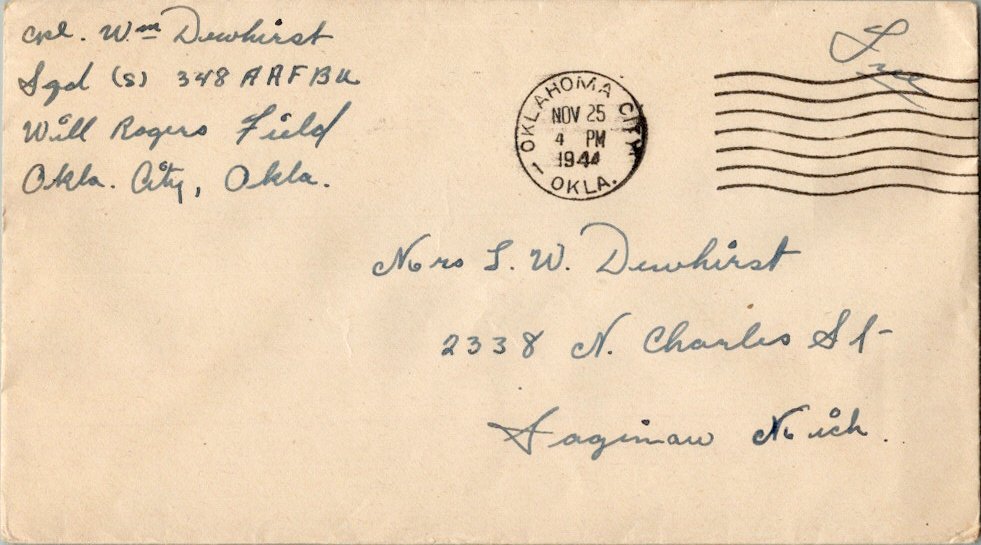 Cpl. Wm Dewhirst
Sqd (S) 348 AAFBU
Will Rogers Field
Okla. City, Okla.
Free
OKLAHOMA CITY
NOV 25
4 PM
1944
OKLA.
Mrs L. W. Dewhirst
2338 N. Charles St
Saginaw Mich.